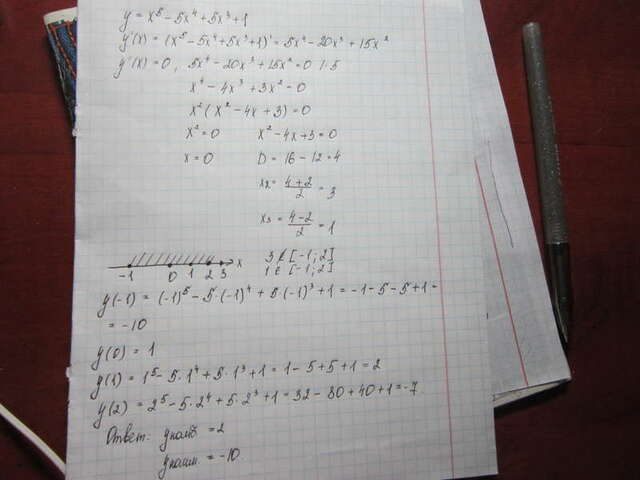 y = x⁵ - 5x⁴ + 5x³ + 1
y'(x) = (x⁵ - 5x⁴ + 5x³ + 1)' = 5x⁴ - 20x³ + 15x²
y'(x) = 0, 5x⁴ - 20x³ + 15x² = 0 | : 5
x⁴ - 4x³ + 3x² = 0
x² (x² - 4x + 3) = 0
x² = 0 x² - 4x + 3 = 0
x = 0 D = 16 - 12 = 4
x₂ = (4+2)/2 = 3
x₃ = (4-2)/2 = 1
-1 0 1 2 3 x 3 ∉ [-1; 2]
1 ∈ [-1; 2]
y(-1) = (-1)⁵ - 5·(-1)⁴ + 5·(-1)³ + 1 = -1 - 5 - 5 + 1 =
= -10
y(0) = 1
y(1) = 1⁵ - 5·1⁴ + 5·1³ + 1 = 1 - 5 + 5 + 1 = 2
y(2) = 2⁵ - 5·2⁴ + 5·2³ + 1 = 32 - 80 + 40 + 1 = -7
Ответ: yнаиб = 2
yнаим = -10